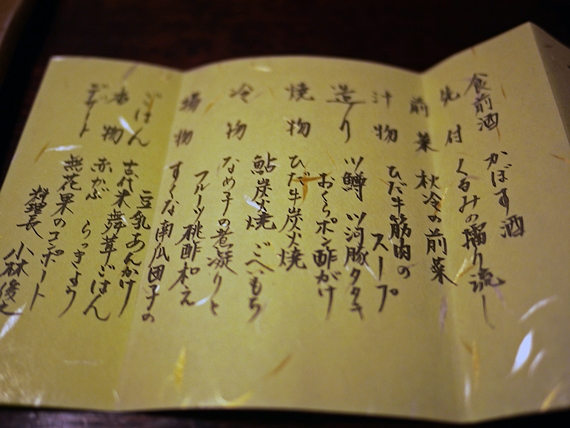 食前酒 かぼす酒
先付 くるみの擂り流し
前菜 秋冷の前菜
汁物 ひだ牛筋肉の
スープ
造り 川鱒 川河豚タタキ
おくらポン酢がけ
焼物 ひだ牛炭火焼
鮎炭火焼 ごへいもち
冷物 なめ子の煮凝りと
フルーツ桃酢和え
揚物 すくな南瓜団子の
豆乳あんかけ
ごはん 古代米舞茸ごはん
香物 赤かぶ らっきょう
デザート 無花果のコンポート
料理長 小林俊